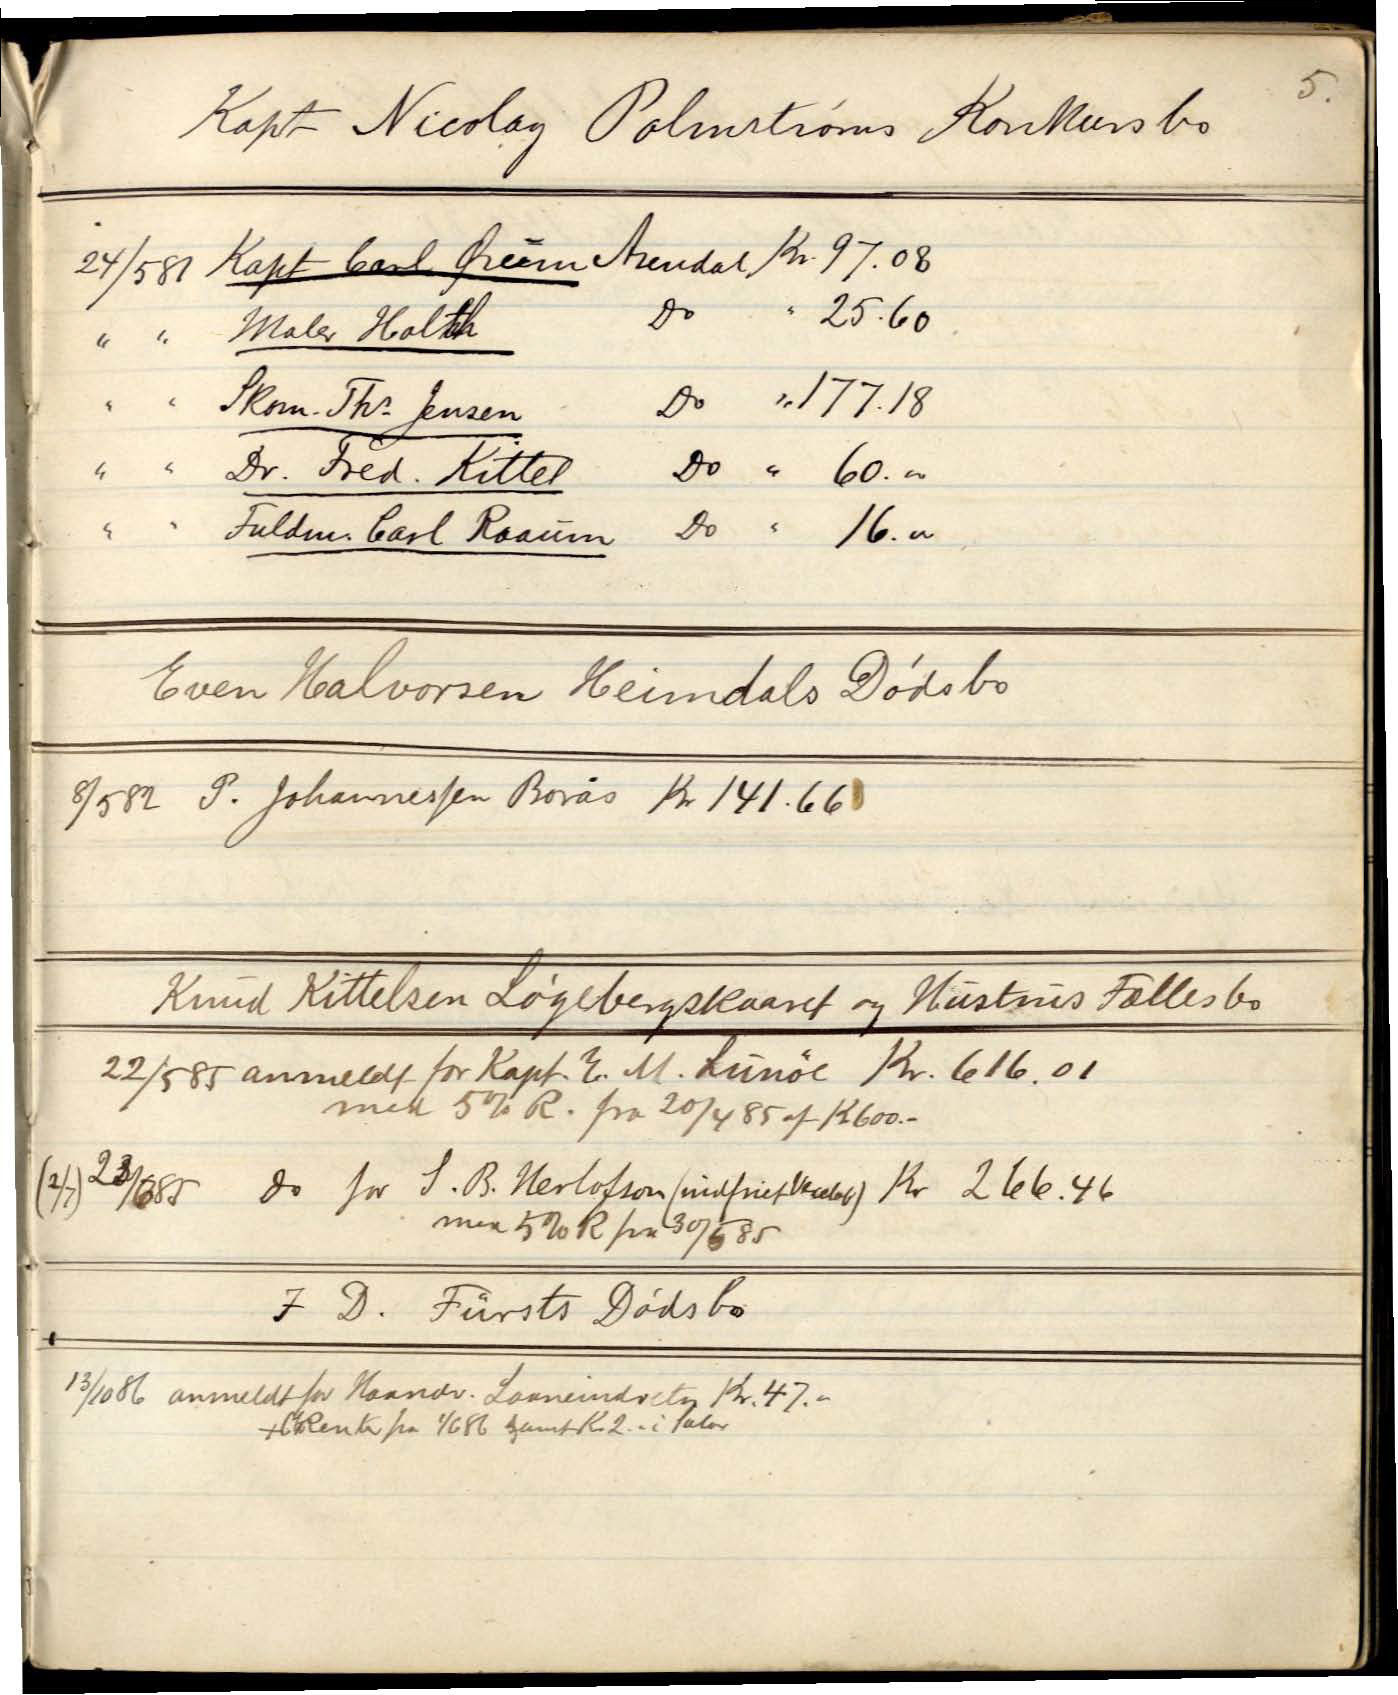 5.
Kapt Nicolay Palmströms Konkursbo
24/5 81 Kapt Carl Grüm Arendal Kr. 97.08
" " Maler Holth Do " 25.60
" " Skom. Ths. Jensen Do " 177.18
" " Dr. Fred. Kittel Do " 60. "
" " Fuldm. Carl Raaum Do " 16. "
Even Halvorsen Heimdals Dödsbo
8/5 82 P. Johannessen Borås Kr 141.66
Knud Kittelsen Lögebergskaaret og Hustrus Fællesbo
22/5 85 anmeldt for Kapt. E. M. Lunöe Kr. 616.01
med 5% R. fra 20/4 85 af K 600.-
(2/7) 23/6 85 do for S. B. Herlofson (indfriet Vexel) Kr 266.46
med 5% R fra 30/6 85
F D. Fürsts Dödsbo
13/10 86 anmeldt for Haandv. Laaneindretn Kr. 47. "
+ 6% Rente fra 1/6 86 samt Kr 2.- i Salær